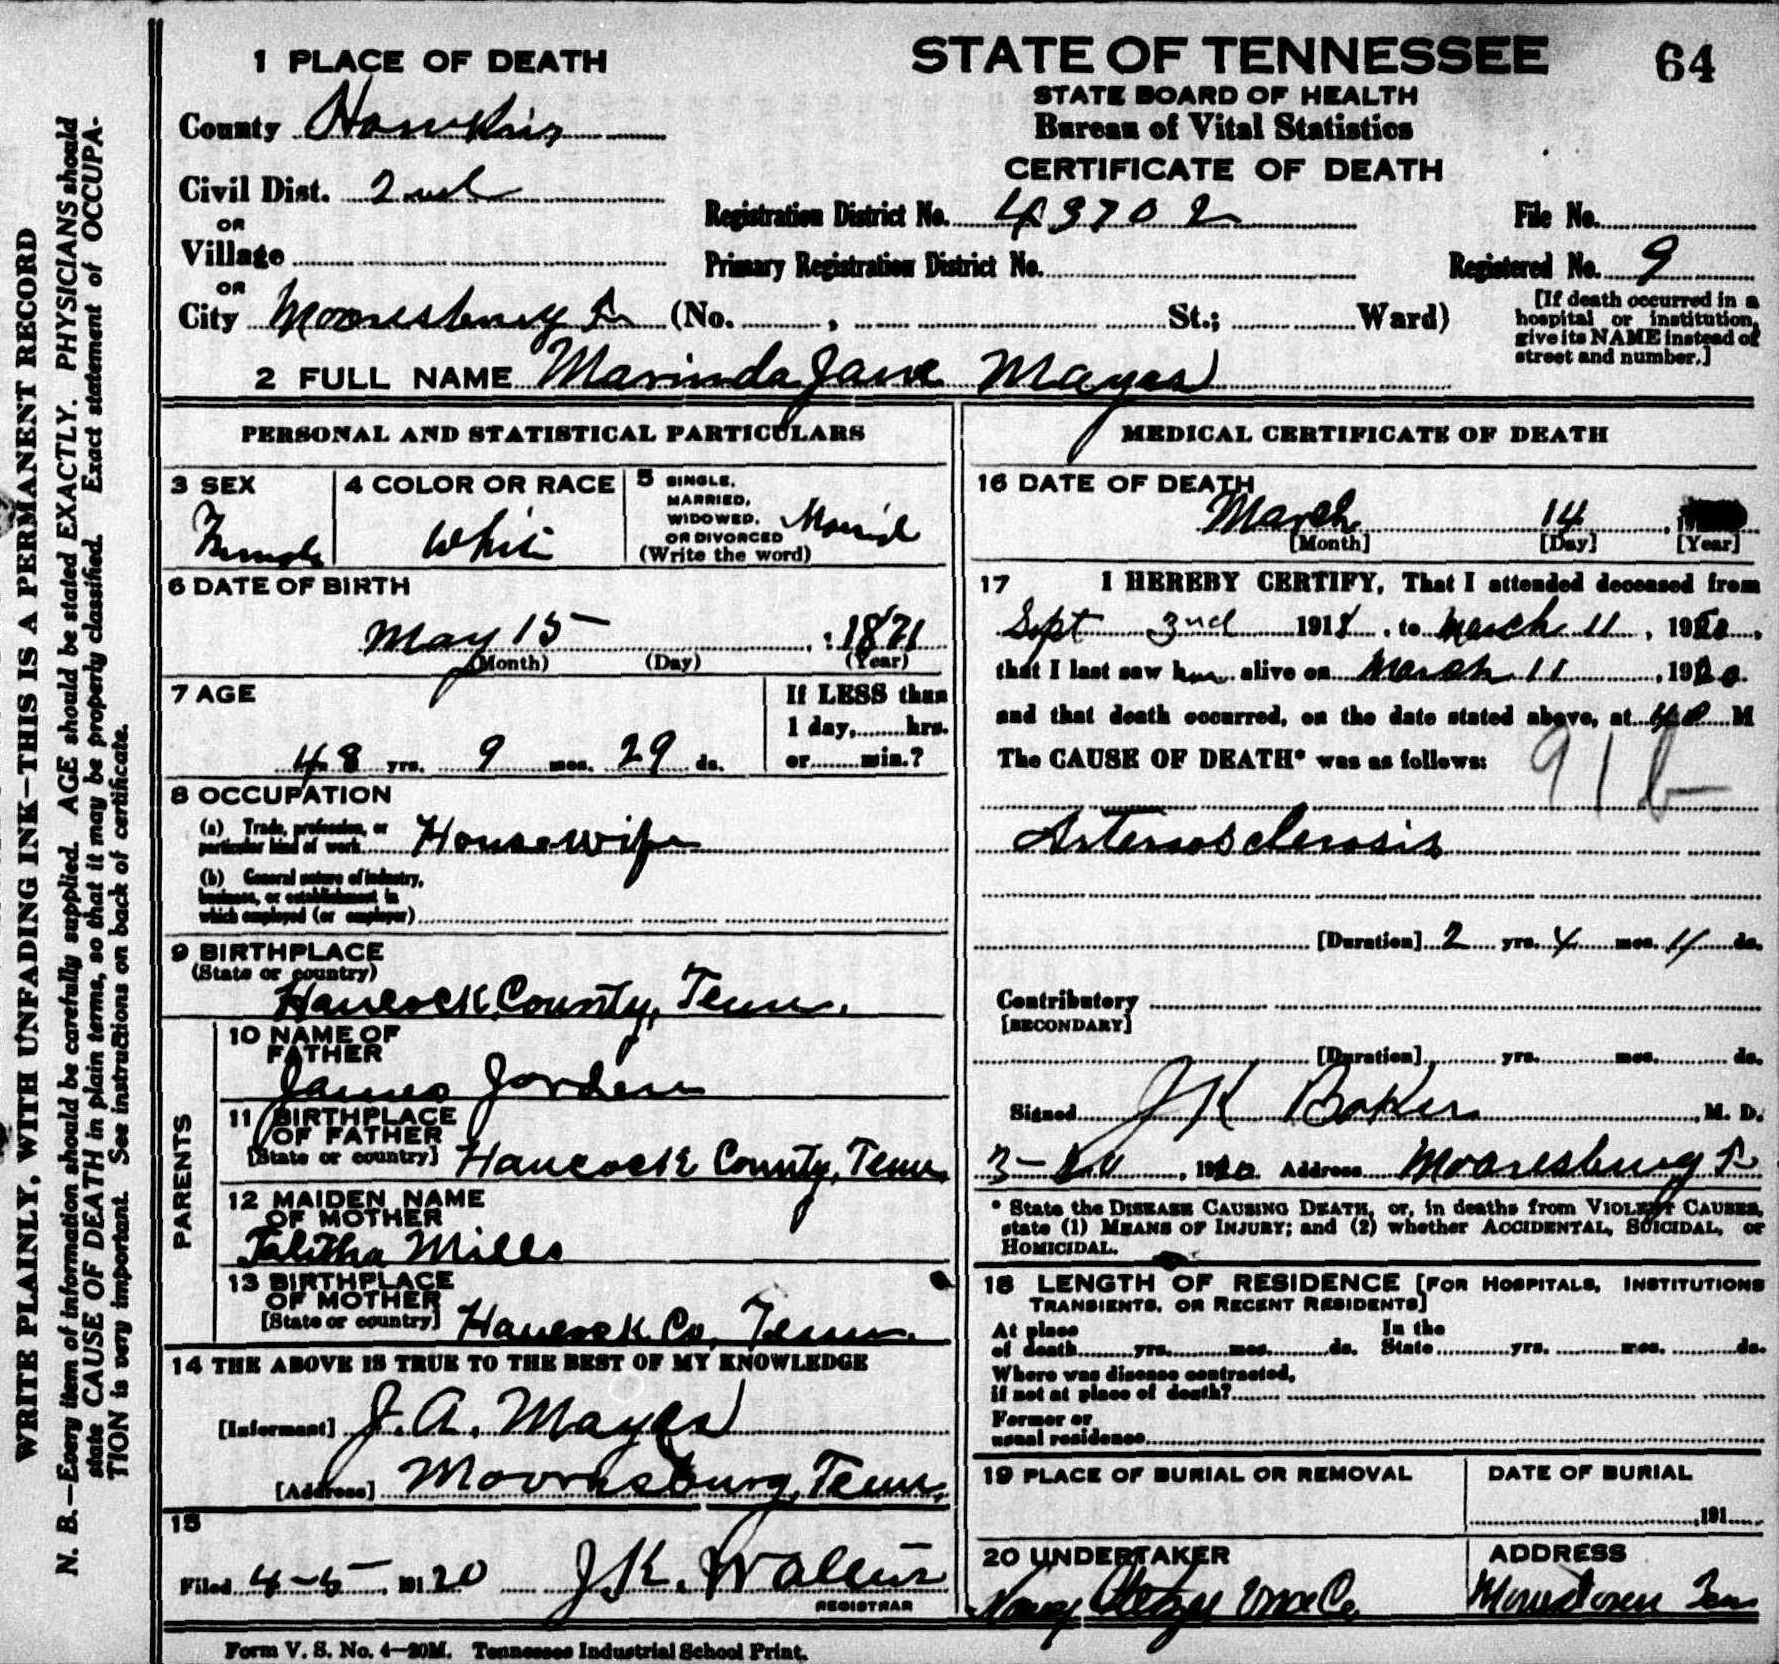 WRITE PLAINLY, WITH UNFADING INK—THIS IS A PERMANENT RECORD
N. B.—Every item of information should be carefully supplied. AGE should be stated EXACTLY. PHYSICIANS should
state CAUSE OF DEATH in plain terms, so that it may be properly classified. Exact statement of OCCUPA-
TION is very important. See instructions on back of certificate.
1 PLACE OF DEATH
County Hawkins
Civil Dist. 2nd
OR
Village
OR
City Mooresburg Tn (No. , St.; Ward)
STATE OF TENNESSEE
64
STATE BOARD OF HEALTH
Bureau of Vital Statistics
CERTIFICATE OF DEATH
Registration District No. 43702 File No.
Primary Registration District No. Registered No. 9
[If death occurred in a
hospital or institution,
give its NAME instead of
street and number.]
2 FULL NAME Marinda Jane Mayes
PERSONAL AND STATISTICAL PARTICULARS
3 SEX
Female
4 COLOR OR RACE
White
5 SINGLE,
MARRIED,
WIDOWED,
OR DIVORCED
(Write the word)
Married
6 DATE OF BIRTH
May 15 , 1871
(Month) (Day) (Year)
7 AGE
48 yrs. 9 mos. 29 ds.
If LESS than
1 day, hrs.
or min.?
8 OCCUPATION
(a) Trade, profession, or
particular kind of work Housewife
(b) General nature of industry,
business, or establishment in
which employed (or employer)
9 BIRTHPLACE
(State or country)
Hancock County, Tenn.
PARENTS
10 NAME OF
FATHER
James Jorden
11 BIRTHPLACE
OF FATHER
[State or country] Hancock County, Tenn
12 MAIDEN NAME
OF MOTHER
Talitha Mills
13 BIRTHPLACE
OF MOTHER
[State or country] Hancock Co, Tenn.
14 THE ABOVE IS TRUE TO THE BEST OF MY KNOWLEDGE
[Informant] J. A. Mayes
[Address] Mooresburg, Tenn.
15
Filed 4-5 , 191 20 J. K.
REGISTRAR
MEDICAL CERTIFICATE OF DEATH
16 DATE OF DEATH
March 14
[Month] [Day] [Year]
17 I HEREBY CERTIFY, That I attended deceased from
Sept 2nd 1918, to March 11, 1920,
that I last saw her alive on March 11, 1920.
and that death occurred, on the date stated above, at M
The CAUSE OF DEATH* was as follows:
91b
Arteriosclerosis
[Duration] 2 yrs. 4 mos. 11 ds.
Contributory
[SECONDARY]
[Duration] yrs. mos. ds.
Signed J K Baker, M. D.
3- , 1920 Address Mooresburg Tn
* State the DISEASE CAUSING DEATH, or, in deaths from VIOLENT CAUSES,
state (1) MEANS OF INJURY; and (2) whether ACCIDENTAL, SUICIDAL, or
HOMICIDAL.
18 LENGTH OF RESIDENCE [FOR HOSPITALS, INSTITUTIONS
TRANSIENTS, OR RECENT RESIDENTS]
At place
of death yrs. mos. ds.
In the
State yrs. mos. ds.
Where was disease contracted,
if not at place of death?
Former or
usual residence
19 PLACE OF BURIAL OR REMOVAL
DATE OF BURIAL
, 191
20 UNDERTAKER
ADDRESS
Morristown Tenn
Form V. S. No. 4—20M. Tennessee Industrial School Print.